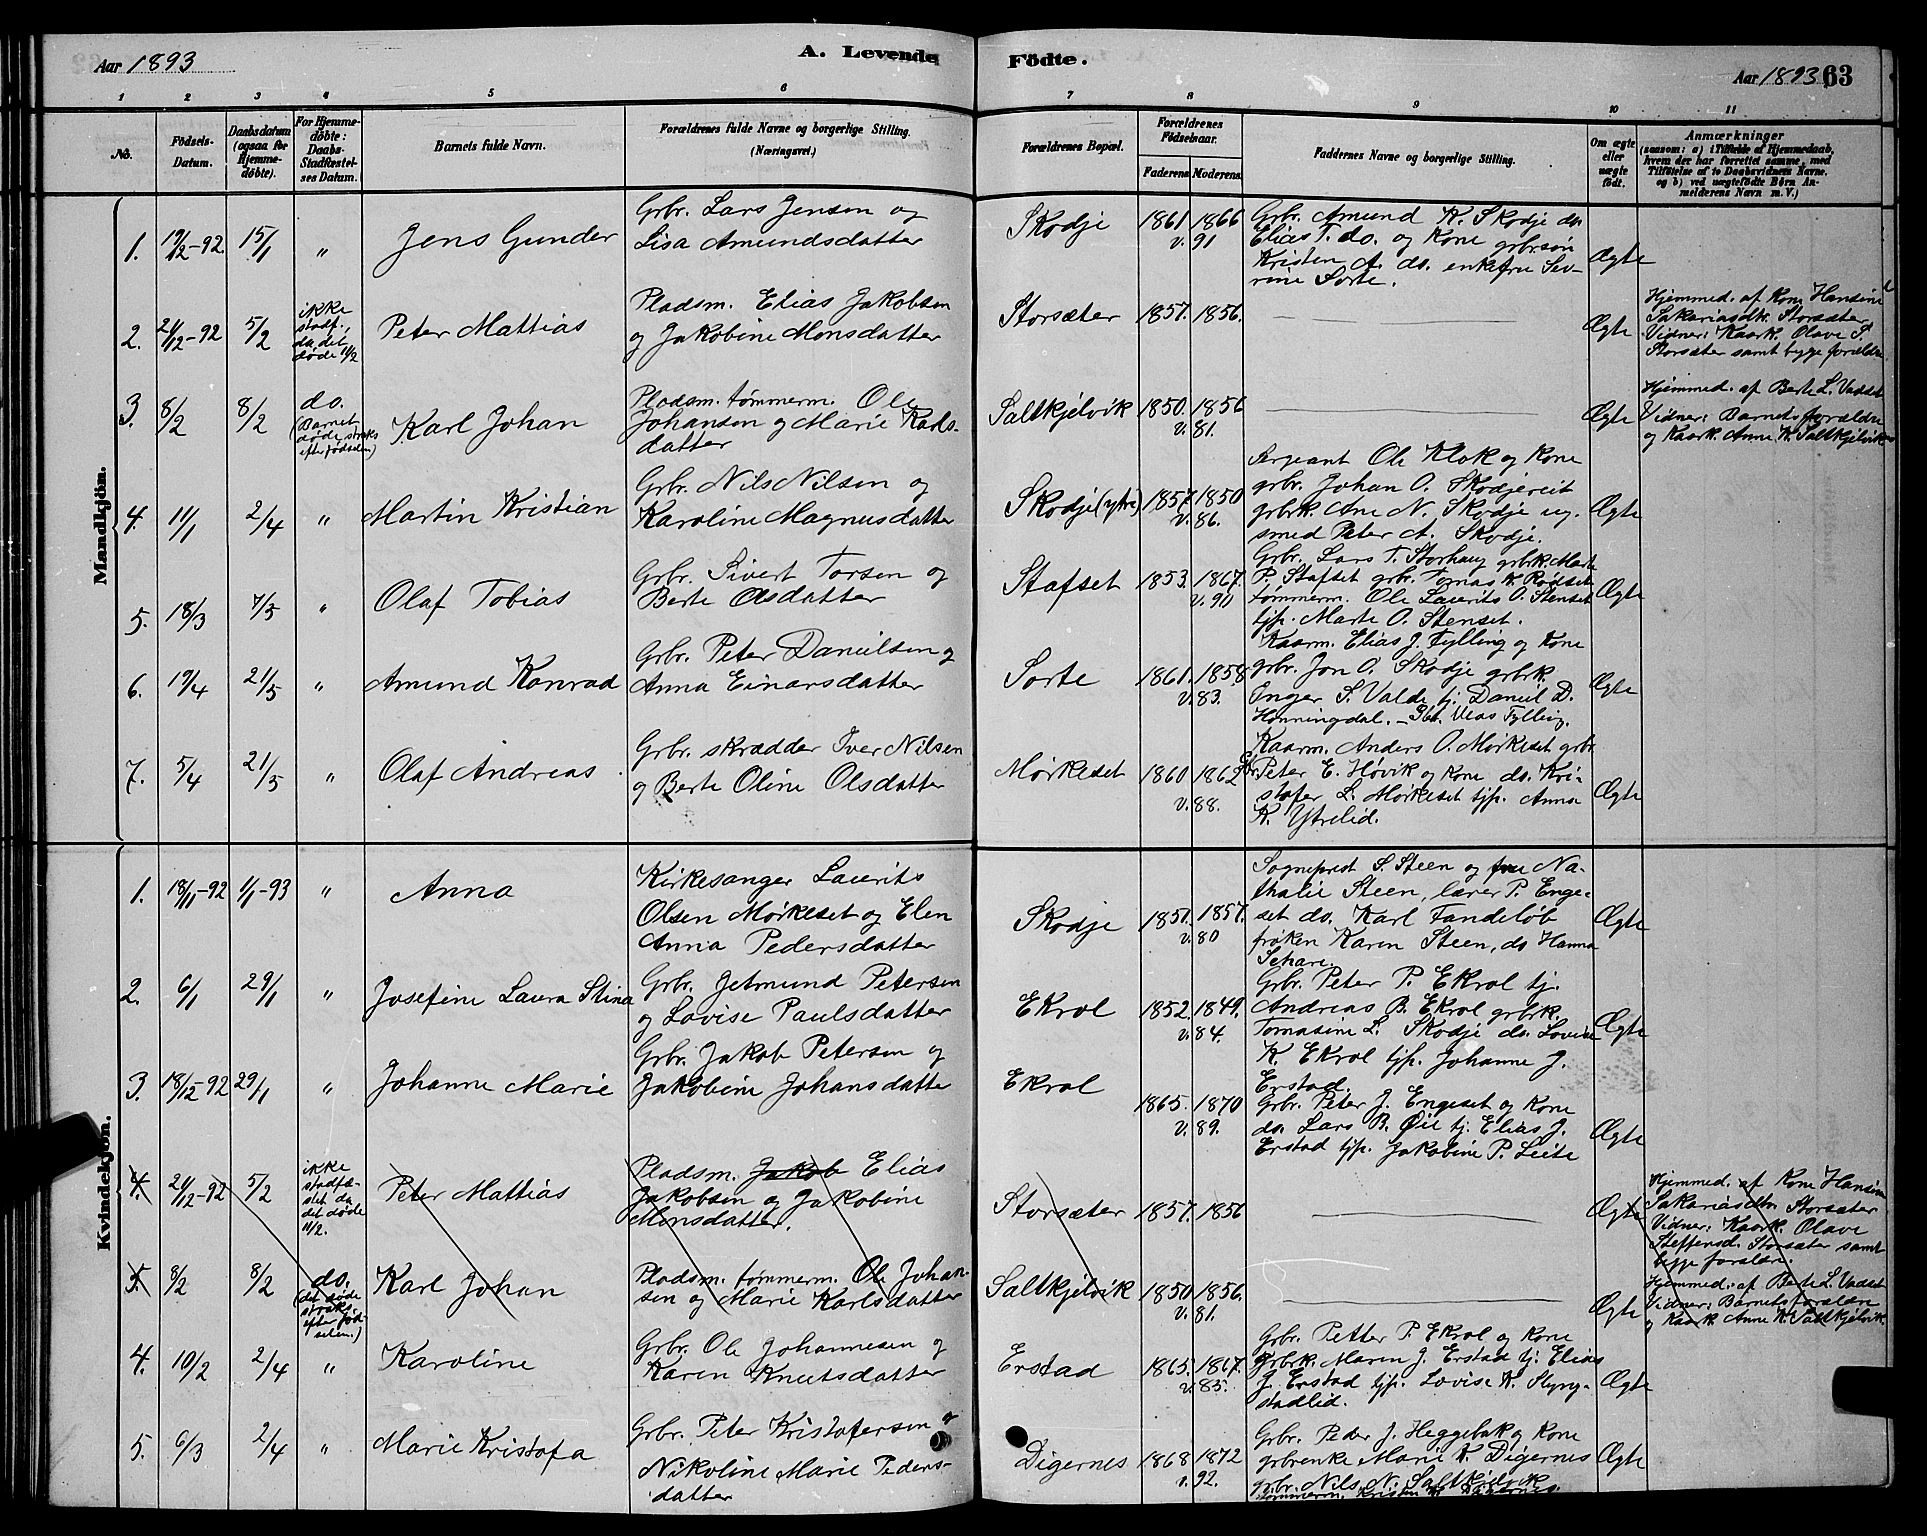 Aar 1893
A. Levende Födte.
Aar 1893
63
1 2 3 4 5 6 7 8 9 10 11
No.
Födsels-
Datum.
Daabsdatum
(ogsaa for
Hjemme-
döbte).
For Hjemme-
döbte:
Daabs-
Stadfæstel-
ses Datum.
Barnets fulde Navn.
Forældrenes fulde Navne og borgerlige Stilling.
(Næringsvei.)
Forældrenes Bopæl.
Forældrenes
Födselsaar.
Faderens
Moderens.
Faddernes Navne og borgerlige Stilling.
Om ægte
eller
uægte
födt.
Anmærkninger
(saasom: a) i Tilfælde af Hjemmedaab,
hvem der har forrettet samme, med
Tilföielse af to Daabsvidners Navne,
og b) ved uægtefödte Börn An-
melderens Navn m. V.)
Mandkjön.
1. 19/12-92. 15/1 " Jens Gunder
Grbr. Lars Jensen og
Lisa Amundsdatter
Skodje 1861 1866
v. 91
Grbr. Amund K. Skodje do.
Elias T. do. og Kone grbrsøn
Kristen A. do. enkefru Sev-
rine Sorte.
Ægte
2. 21/12-92 5/2
ikke
stadf.,
da det
døde 11/2
Peter Mattias
Pladsm. Elias Jakobsen
og Jakobine Monsdatter
Storsæter 1857. 1856.
Ægte
Hjemmed. af Kone Hansine
Sakariasdtr. Storsæter
Vidner: Kaark. Olave S.
Storsæter samt begge forældre
3. 8/2 8/2
do.
(Barnet
døde straks
efter fødselen)
Karl Johan
Pladsm. tømmerm. Ole
Johansen og Marie Karls-
datter
Saltkjelvik 1850. 1856
v. 81.
Ægte
Hjemmed. af Berte L. Vadset
Vidner: Barnets forældre
og Kaark. Anne K. Saltkjelvik
4. 11/1 2/4 " Martin Kristian
Grbr. Nils Nilsen og
Karoline Magnusdatter
Skodje (ytre) 1857. 1850
v. 86.
Sergeant Ole Klok og Kone
grbr. Johan O. Skodjereit
grbrk. Ane N. Skodje ug.
smed Peter A. Skodje.
Ægte
5. 18/3 7/5 " Olaf Tobias
Grbr. Sivert Torsen og
Berte Olsdatter
Stafset 1853. 1867.
v. 90
Grbr. Lars T. Storhaug grbrk. Marte
P. Stafset grbr. Tomas K. Rødset
tømmerm. Ole Laurits O. Stenset
tjp. Marte O. Stenset.
Ægte
6. 19/4 21/5 " Amund Konrad
Grbr. Peter Danielsen og
Anna Einarsdatter
Sorte 1861. 1858
v. 83.
Kaarm. Elias J. Fylling og Kone
grbr. Jon O. Skodje grbrk.
Inger S. Valde tj. Daniel D.
Honningdal.
Fylling.
Ægte
7. 5/4 21/5 " Olaf Andreas.
Grbr. skrædder Iver Nilsen
og Berte Oline Olsdatter
Mørkeset 1860 1862
v. 88.
Kaarm. Anders O. Mørkeset grbr.
Peter E. Høvik og Kone do. Kri-
stofer L. Mørkeset tjp. Anna
K. Ytrelid.
Ægte
Kvindekjön.
1. 18/11-92 1/1-93 " Anna
Kirkesanger Laurits
Olsen Mørkeset og Elen
Anna Pedersdatter
Skodje 1851. 1857.
v. 80
Sogneprest S. Steen og frue Na-
thalie Steen, lærer P. Enge-
set do. Karl Fandeløb
frøken Karen Steen, do Hanna
Ægte
2. 6/1 29/1 " Josefine Laura Stina
Grbr. Jetmund Petersen
og Lovise Paulsdatter
Ekrol 1852. 1849.
v. 84.
Grbr. Peter P. Ekrol tj.
Andreas B. Ekrol grbrk.
Tomasine L. Skodje do. Lovise
K. Ekrol tjp. Johanne J.
Erstad.
Ægte
3. 18/12 92 29/1 " Johanne Marie
Grbr. Jakob Petersen og
Jakobine Johansdatter
Ekrol
1865. 1870
v. 89.
Grbr. Peter J. Engeset og Kone
do. Lars B. Øie tj. Elias J.
Erstad tjp. Jakobine P. Leite
Ægte
4. 21/12-92 5/2
ikke
stadfæ-
stet da
det døde
11/2.
Peter Mattias
Pladsm. Jakob Elias
Jakobsen og Jakobine
Monsdatter.
Storsæter 1857. 1856
Ægte
Hjemmed. af Kone Hansine
Sakariasdtr. Storsæter
Vidner: Kaark. Olave
Steffensd. Storsæter samt
begge forældre.
5. 8/2 8/2
do.
(det døde
straks
efter fød-
selen.)
Karl Johan
Pladsm. tømmerm. Ole Johan-
sen og Marie Karlsdatter
Saltkjelvik 1850 1856.
v. 81.
Ægte
Hjemmed. af Berte L. Vadset
Vidner: Barnets forældre
og Kaark. Anne K. Saltkjelvik.
4. 10/2 2/4 " Karoline
Grbr. Ole Johannesen og
Karen Knutsdatter
Erstad 1865. 1867.
v. 85.
Grbr. Petter P. Ekrol og Kone
grbrk. Maren J. Erstad tj. Elias
J. Erstad tjp. Lovise K. Slyng-
stadlid.
Ægte
5. 6/3 2/4 " Marie Kristofa
Grbr. Peter Kristofersen og
Nikoline Marie Peders-
datter
Digernes 1868 1872
v. 92.
Grbr. Peder J. Heggebak og Kone
grbrenke Marie K. Digernes
grbr. Nils N. Saltkjelvik
tømmerm. Kristen Digernes.
Ægte